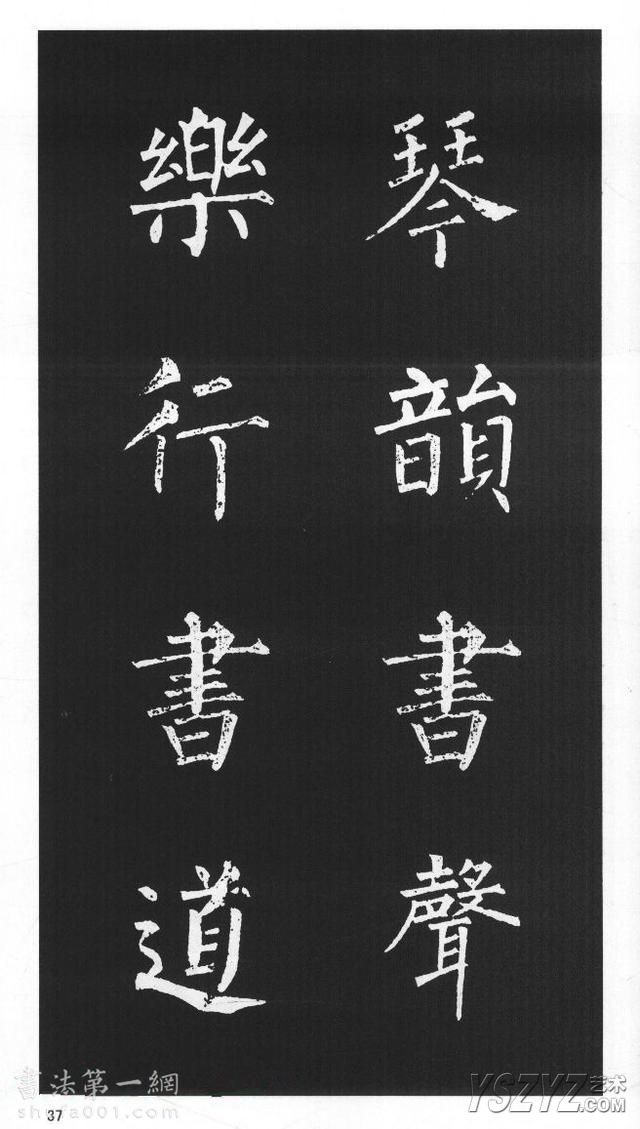 琴韻書聲
樂行書道
書法第一網
shufa001.com
37
YSZYZ艺术
.COM